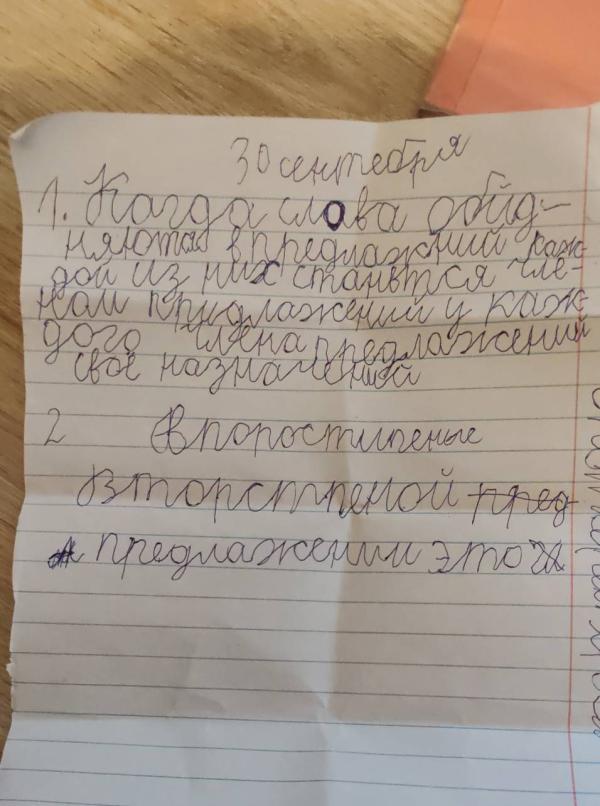 30 сентебря
1. Когда слова обйд-
няются в предлажний каж-
дой из них станьтся чле-
ном придлажений у каж-
дого члена предлажений
своё назначений
2 Впоростипеные
Вторстпеной пред
предлажении это